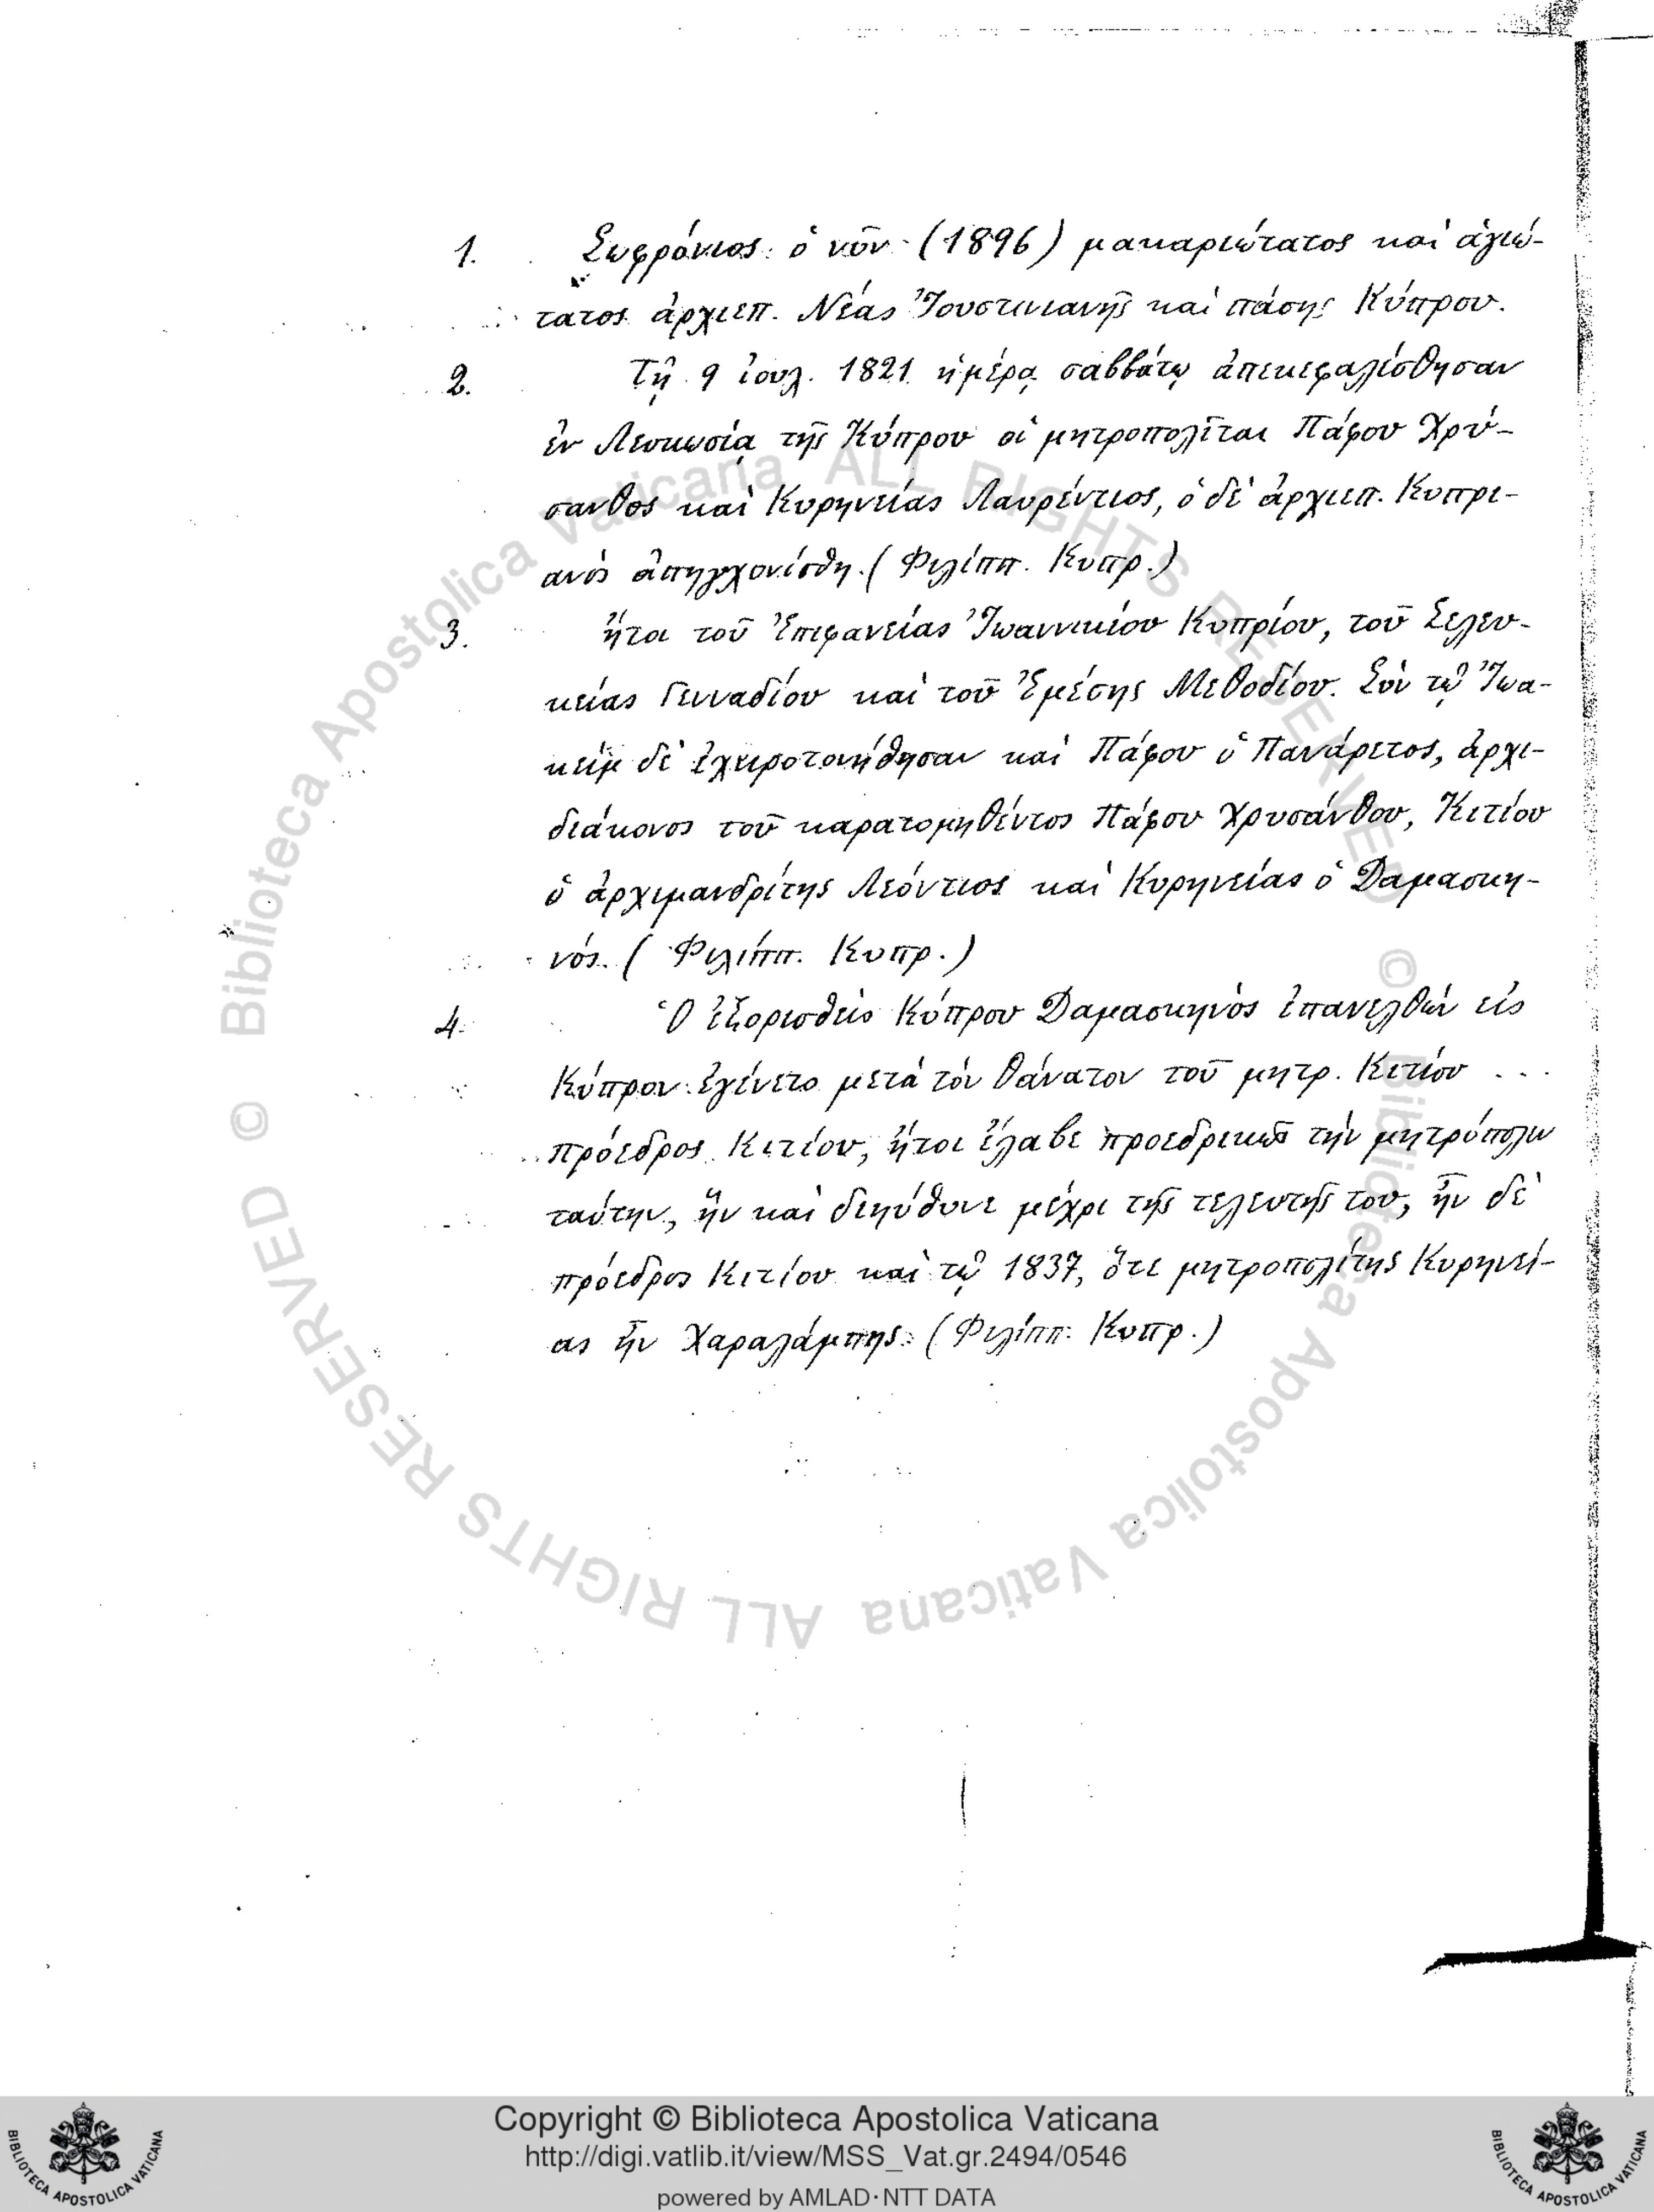 1. Σωφρόνιος ὁ νῦν (1896) μακαριώτατος καὶ ἁγιώ-
τατος ἀρχιεπ. Νέας Ἰουστινιανῆς καὶ πάσης Κύπρου.
2. Τῇ 9 ἰουλ. 1821 ἡμέρᾳ σαββάτῳ ἀπεκεφαλίσθησαν
ἐν Λευκωσίᾳ τῆς Κύπρου οἱ μητροπολῖται Πάφου Χρύ-
σανθος καὶ Κυρηνείας Λαυρέντιος, ὁ δὲ ἀρχιεπ. Κυπρι-
ανὸς ἀπηγχονίσθη. (Φιλίππ. Κυπρ.)
3. ἤτοι τοῦ Ἐπιφανείας Ἰωαννικίου Κυπρίου, τοῦ Σελευ-
κείας Γενναδίου καὶ τοῦ Ἐμέσης Μεθοδίου. Σὺν τῷ Ἰωα-
κεὶμ δὲ ἐχειροτονήθησαν καὶ Πάφου ὁ Πανάρετος, ἀρχι-
διάκονος τοῦ καρατομηθέντος Πάφου Χρυσάνθου, Κιτίου
ὁ ἀρχιμανδρίτης Λεόντιος καὶ Κυρηνείας ὁ Δαμασκη-
νός. (Φιλίππ. Κυπρ.)
4. Ὁ ἐξορισθεὶς Κύπρου Δαμασκηνὸς ἐπανελθὼν εἰς
Κύπρον ἐγένετο μετὰ τὸν θάνατον τοῦ μητρ. Κιτίου ...
πρόεδρος Κιτίου, ἤτοι ἔλαβε προεδρικῶς τὴν μητρόπολιν
ταύτην, ἣν καὶ διηύθυνε μέχρι τῆς τελευτῆς του, ἦν δὲ
πρόεδρος Κιτίου καὶ τῷ 1837, ὅτε μητροπολίτης Κυρηνεί-
ας ἦν Χαραλάμπης. (Φιλίππ. Κυπρ.)
© Biblioteca Apostolica Vaticana ALL RIGHTS RESERVED
© Biblioteca Apostolica Vaticana ALL RIGHTS RESERVED
Copyright © Biblioteca Apostolica Vaticana
http://digi.vatlib.it/view/MSS_Vat.gr.2494/0546
powered by AMLAD·NTT DATA
BIBLIOTECA APOSTOLICA VATICANA
BIBLIOTECA APOSTOLICA VATICANA